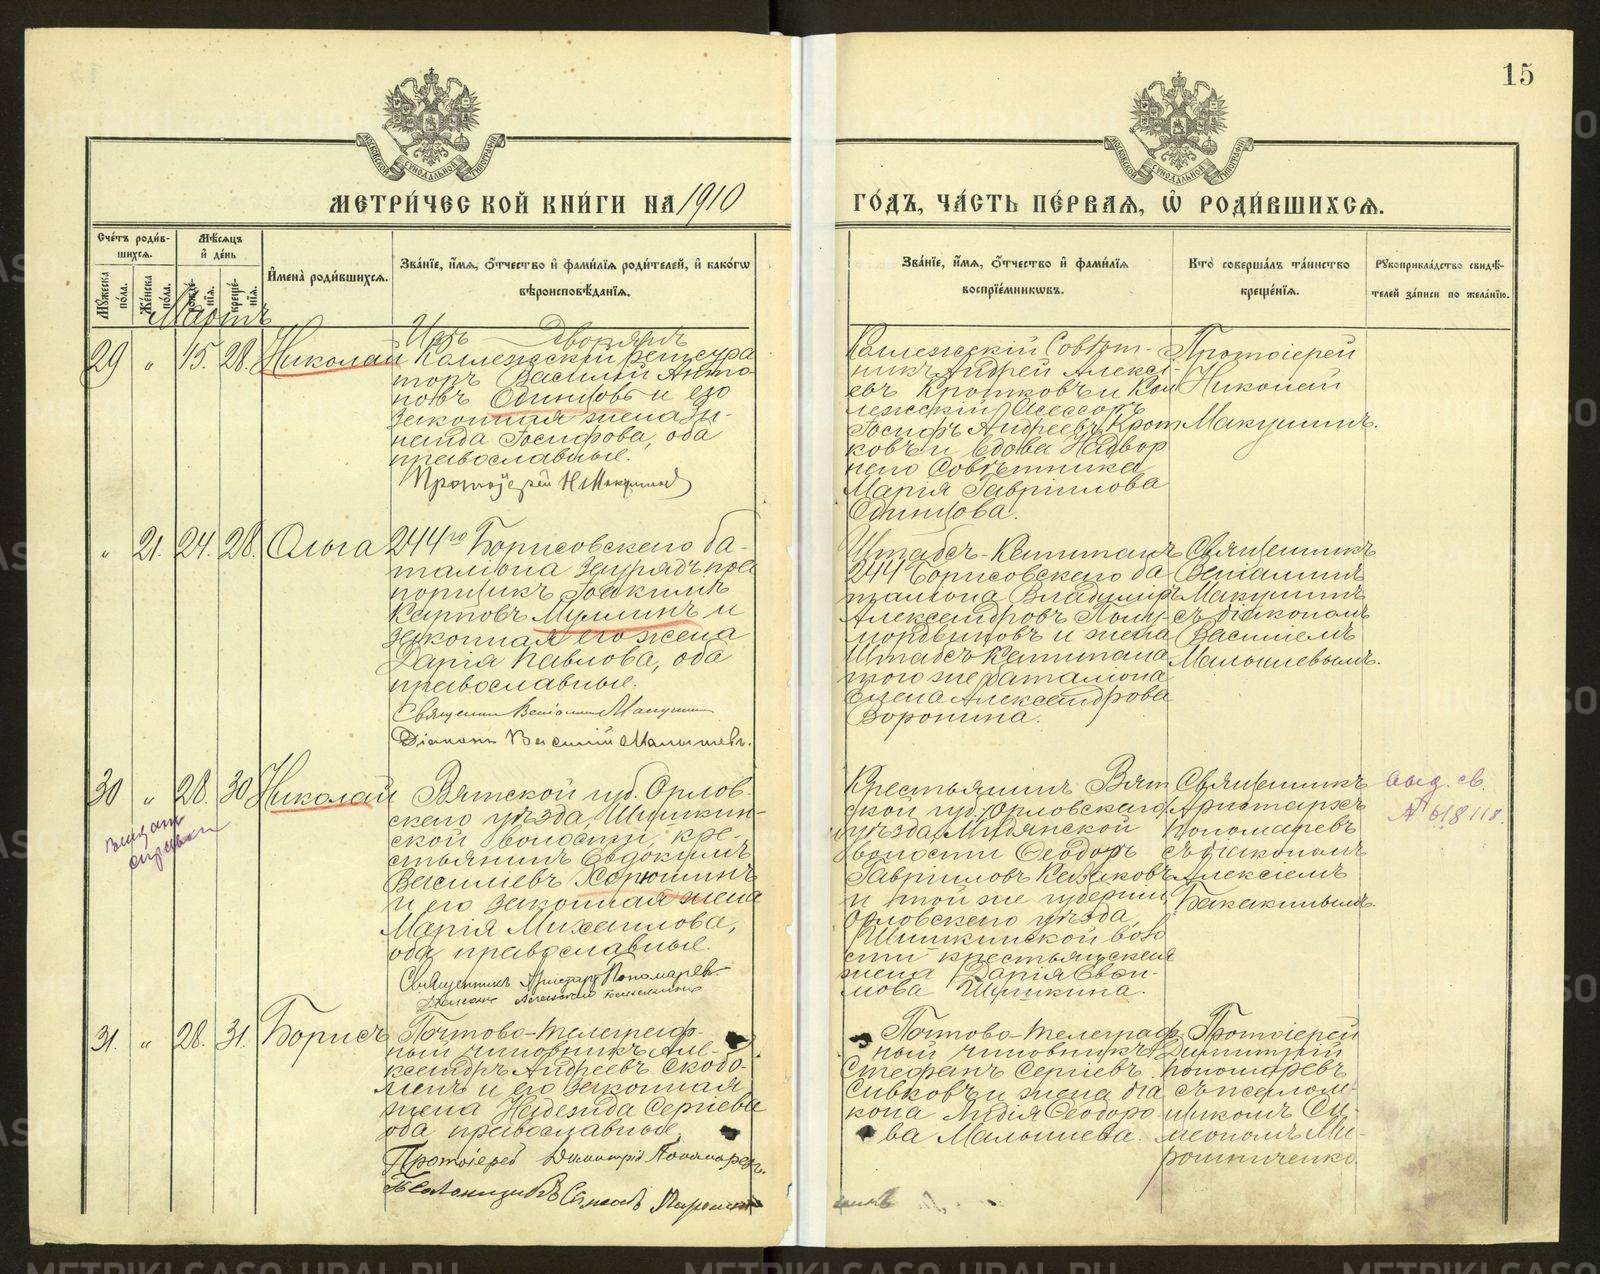 15
МОСКОВСКОЙ СѴНОДАЛЬНОЙ ТИПОГРАФІИ
МОСКОВСКОЙ СѴНОДАЛЬНОЙ ТИПОГРАФІИ
МЕТРИ́ЧЕСКОЙ КНИ́ГИ НА 1910
ГО́ДЪ, ЧА́СТЬ ПЕ́РВАѦ, Ѡ҆ РОДИ́ВШИХСѦ.
Сче́тъ роди́в-
шихсѧ.
Мꙋ́жеска по́ла.
Же́нска по́ла.
Мѣ́сѧцъ
и҆ де́нь
рожде́-нїѧ.
креще́-нїѧ.
И҆мена̀ роди́вшихсѧ.
Зва́нїе, и҆́мѧ, ѻ҆́тчество и҆ фами́лїѧ роди́телей, и҆ како́гѡ
вѣроисповѣ́данїѧ.
Зва́нїе, и҆́мѧ, ѻ҆́тчество и҆ фами́лїѧ
воспрїе́мникѡвъ.
Кто̀ соверша́лъ та́инство
креще́нїѧ.
Рꙋкоприкла́дство свидѣ́-
телей за́писи по жела́нїю.
Мартъ
29 " 15. 28. Николай
Изъ Дворянъ
Коллежскій регистра
торъ Василій Анто-
новъ Одинцовъ и его
законная жена Зи-
наида Іосифова, оба
православные.
Протоіерей Н Макушинъ
Коллежскій Совѣт-
никъ Андрей Алексѣ-
евъ Кротковъ и Кол
лежскій Асессоръ
Іосифъ Андреевъ Крот
ковъ и вдова Надвор
наго Совѣтника
Марія Гавріилова
Одинцова.
Протоіерей
Николай
Макушинъ.
" 21. 24. 28. Ольга
244го Борисовскаго ба-
таліона Заурядъ пра
порщикъ Іоакимъ
Карповъ Муллинъ и
законная его жена
Дарія Павлова, оба
православные.
Священник Веніамин Макушин
Діаконъ Василій Малышевъ.
Штабсъ-Капитанъ
244 Борисовскаго ба
таліона Владиміръ
Александровъ Полу-
мордвиновъ и жена
Штабсъ Капитана
того же баталіона
Елена Александрова
Воронина.
Священникъ
Веніаминъ
Макушинъ
съ діакономъ
Василіемъ
Малышевымъ.
30 " 28. 30 Николай
Вятской губ. Орлов-
скаго уѣзда, Шушкин-
ской волости, кре-
стьянинъ Евдокимъ
Василіевъ Хорюшинъ
и его законная жена
Марія Михаилова,
оба православные.
Священникъ Аристархъ Пономаревъ
Крестьянинъ Вят
ской губ. Орловскаго
уѣзда,
волости Ѳеодоръ
Гавриловъ Казаковъ
и той же губерніи
Орловскаго уѣзда,
Шушкинской воло
сти крестьянская
жена Дарія Евѳи-
мова Шушкина.
Священникъ
Аристархъ
Пономаревъ
съ діакономъ
Алексіемъ
Бакакинымъ.
выд. св.
31. " 28. 31. Борисъ
Почтово-телеграф-
ный чиновникъ Але-
ксандръ Андреевъ Скобо-
и его законная
жена Надежда Сергіева
оба православные.
Протоіерей Димитрій Пономаревъ.
Почтово-телеграф
ный чиновникъ
Стефанъ Сергіевъ
Сивковъ и жена діа
кона Лидія Ѳеодоро-
ва Малышева.
Протоіерей
Димитрій
Пономаревъ
съ псалом-
щикомъ Си-
меономъ Ми-
рошниченко.